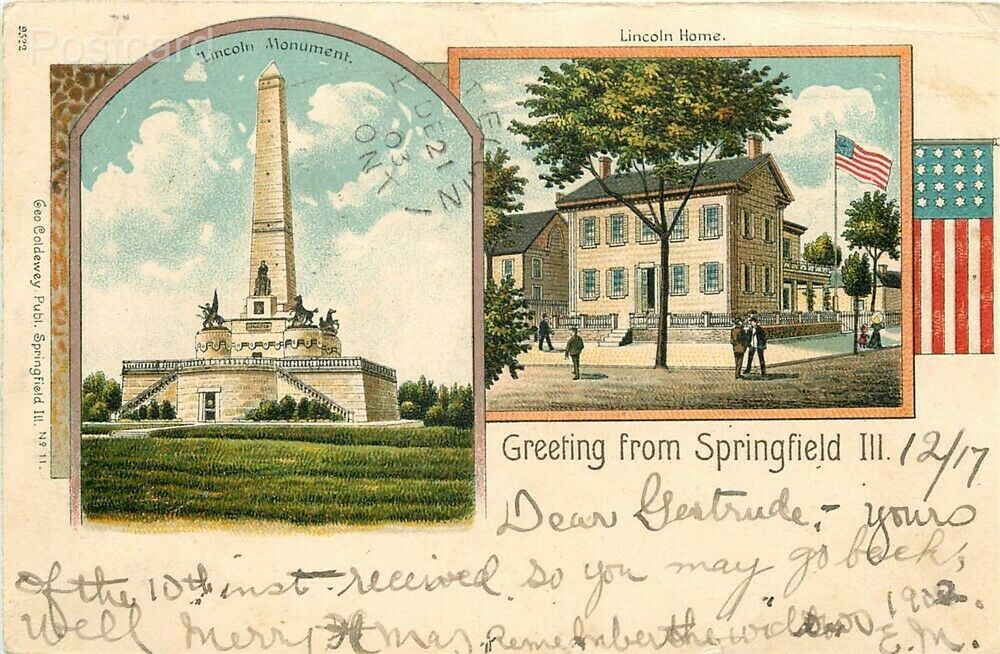 9522
Postcard
Lincoln Monument.
Lincoln Home.
DE 21
03
ONT
Geo Coldewey Publ. Springfield Ill. No. 11.
Greeting from Springfield Ill. 12/17
Dear Gertrude,- yours
of the 10th inst received so you may go back,
Well Merry Xmas, remember the 190
E.M.